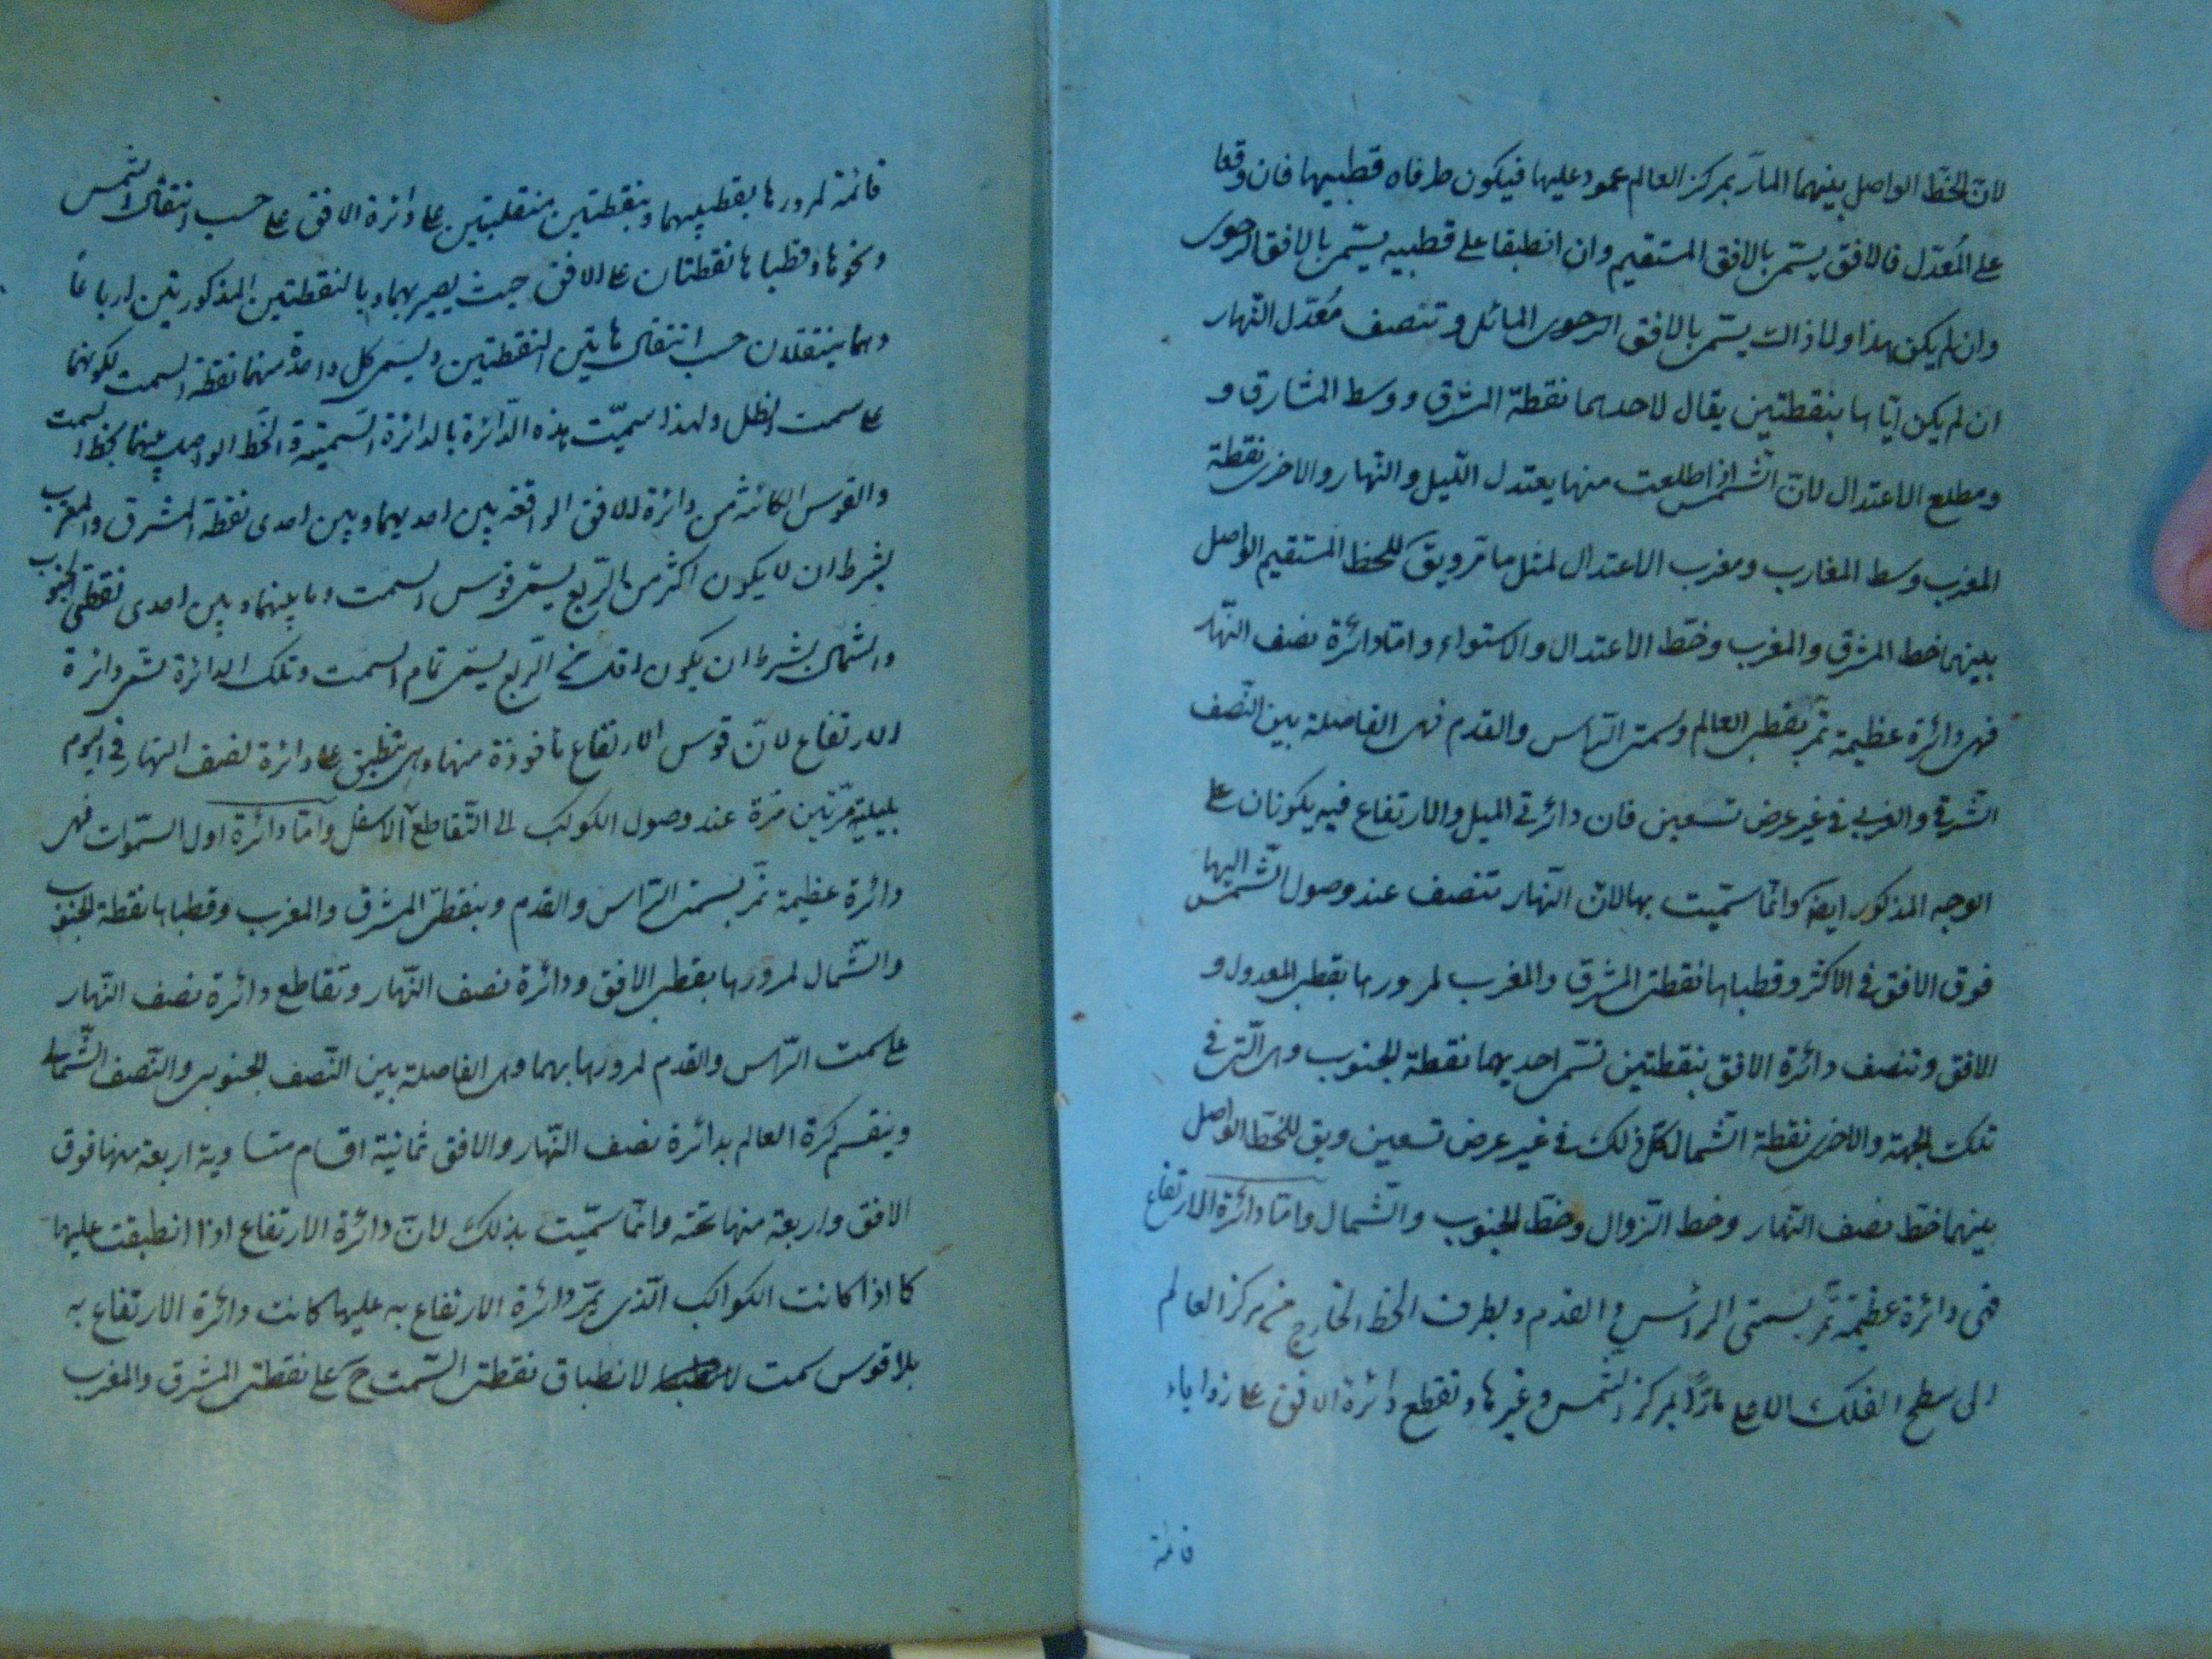 لانّ الخطّ الواصل بينهما المارّ بمركز العالم عمود عليها فيكون طرفاه قطبيها فان وقعا
على المُعدّل فالافق يسمّى بالافق المستقيم وان انطبقا على قطبيه يسمّى بالافق الرحوى
وان لم يكن هذا ولا ذاك يسمّى بالافق الرحوى المائل وتنصف مُعدّل النّهار
ان لم يكن ايّاها بنقطتين يقال لاحدهما نقطة المشرق ووسط المشارق و
ومطلع الاعتدال لانّ الشّمس اذا طلعت منها يعتدل اللّيل والنّهار والاخرى نقطة
المغرب وسط المغارب ومغرب الاعتدال لمثل ما مرّ ويقَ للخط المستقيم الواصل
بينهما خط المشرق والمغرب وخطّ الاعتدال والاستواء وامّا دائرة نصف النّهار
فهى دائرة عظيمة تمرّ بقطبى العالم وسمتى الرّاس والقدم فهى الفاصلة بين النّصف
الشّرقى والغربى فى غير عرض تسعين فان دائرتى الميل والارتفاع فيه يكونان على
الوجه المذكور ايضَ وانّما سمّيت بها لانّ النّهار تنصف عند وصول الشّمس اليها
فوق الافق فى الاكثر وقطباها نقطتى المشرق والمغرب لمرورها بقطبى المعدول و
الافق وتنصف دائرة الافق بنقطتين تسمّى احديهما نقطة الجنوب وهى الّتى فى
تلك الجهة والاخرى نقطة الشّمال كل ذلك فى غير عرض تسعين ويق للخطّ الواصل
بينهما خطّ نصف النّهار وخط الزّوال وخطّ الجنوب والشّمال وامّا دائرة الارتفاع
فهى دائرة عظيمة تمرّ بسمتى الرأس والقدم وبطرف الخط الخارج من مركز العالم
الى سطح الفلك الاعلى مارّاً بمركز الشمس وغيرها وتقطع دائرة الافق على زواياء
قائمة
قائمة لمرورها بقطبيهما وبنقطتين منتقلتين على دائرة الافق على حسب انتقال الشّمس
ونحوها وقطباها نقطتان على الافق حيث يصير بهما وبالنقطتين المذكورتين ارباعاً
وهما ينتقلان حسب انتقال هاتين النقطتين ويسمى كل واحدة منهما نقطة السمت لكونهما
على سمت الظل ولهذا سمّيت هذه الدّائرة بالدائرة السّمتية والخّط الواصل بينهما بخط السمت
والقوس الكائنة من دائرة الافق الواقعة بين احديهما وبين احدى نقطة المشرق والمغرب
بشرط ان لا يكون اكثر من الرّبع يسمّى قوس السمت وما بينهما وبين احدى نقطتى الجنوب
والشمال بشرط ان يكون اقل من الرّبع يسمّى تمام السمت وتلك الدائرة تسمّى دائرة
الارتفاع لانّ قوس الارتفاع مأخوذة منها وهى تنطبق على دائرة نصف النهار فى اليوم
بليلته مرّتين مرّة عند وصول الكوكب الى التّقاطع الاسفل وامّا دائرة اول السّموات فهى
دائرة عظيمة تمرّ بسمتى الرّاس والقدم وبنقطتى المشرق والمغرب وقطباها نقطة الجنوب
والشّمال لمرورها بقطبى الافق ودائرة نصف النّهار وتقاطع دائرة نصف النّهار
على سمت الرّاس والقدم لمرورها بهما وهى الفاصلة بين النّصف الجنوبى والنّصف الشّمالى
وينقسم كرة العالم بدائرة نصف النّهار والافق ثمانية اقسام متساوية اربعة منها فوق
الافق واربعة منها تحته وانّما سمّيت بذلك لانّ دائرة الارتفاع اذا انطبقت عليها
كا اذا كانت الكواكب الّذى تمرّ دائرة الارتفاع به عليها كانت دائرة الارتفاع به
بلا قوس سمت لانطباق نقطتى السّمت حَ على نقطتى المشرق والمغرب